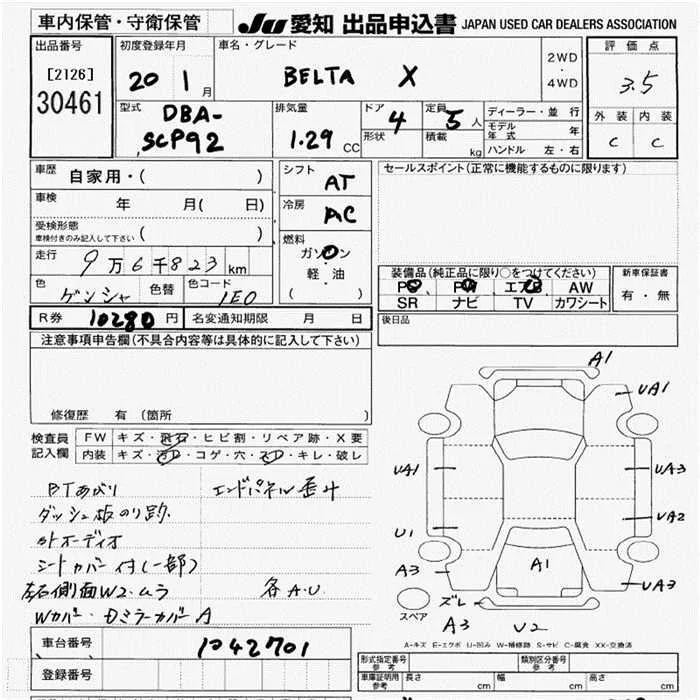 車内保管・守衛保管
JU 愛知 出品申込書 JAPAN USED CAR DEALERS ASSOCIATION
出品番号
[2126]
30461
初度登録年月
20 1月
車名・グレード
BELTA X
2WD
・
4WD
評価点
3.5
外装 内装
C C
型式
DBA-
SCP92
排気量
1.29 CC
ドア 4
形状
定員 5人
積載 kg
ディーラー・並行
モデル年式 年
ハンドル 左・右
車歴
自家用・( )
車検 年 月( 日)
受検形態
車検付きのみ記入して下さい ( )
走行
9万6千823km
色 ゲンシャ
色替
色コード 1E0
シフト
AT
冷房
AC
燃料
ガソリン
・
軽・油
( )
セールスポイント(正常に機能するものに限ります)
装備品(純正品に限り○をつけてください)
PS PW エアB AW
SR ナビ TV カワシート
新車保証書
有・無
R券 10280円
名変通知期限 月 日
後日品
注意事項申告欄(不具合内容等は具体的に記入して下さい)
修復歴 有(箇所 )
検査員
記入欄
FW キズ・飛石・ヒビ割・リペア跡・X要
内装 キズ・汚レ・コゲ・穴・スレ・キレ・破レ
BTあがり
エンドパネル歪ミ
ダッシュ板のり跡
外オーディオ
シートカバー付(一部)
左右側面W2.ムラ
各A.U
Wカバー・Dミラーカバー A
A1
UA1
UA1
UA3
UA2
U1
A3
A1
UA3
スペア
ズレ
A3 U2
A-キズ E-エクボ U-凹み W-補修跡 S-サビ C-腐食 XX-交換済
車台番号
1042701
登録番号
形式指定番号
参考
類別区分番号
参考
車庫証明用
参考
長さ cm
幅 cm
高さ cm